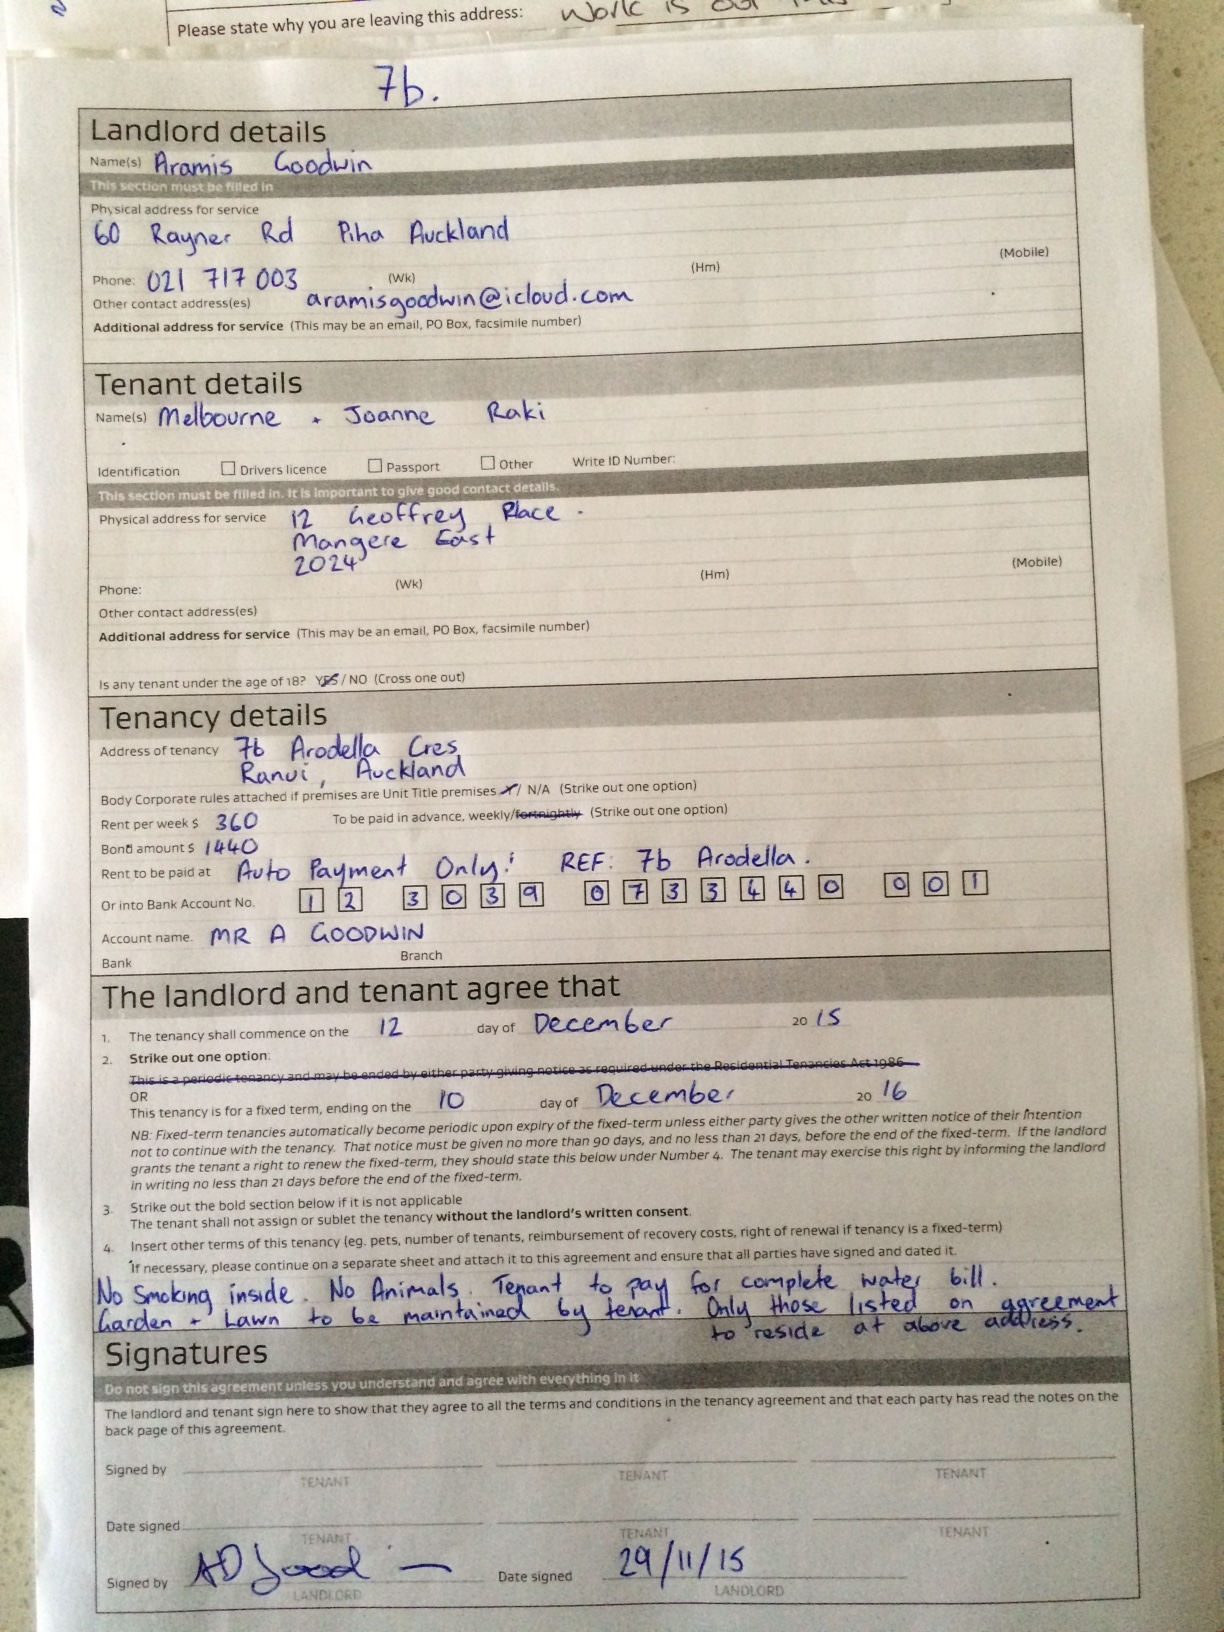 Please state why you are leaving this address: Work is our
7b.
Landlord details
Name(s) Aramis Goodwin
This section must be filled in
Physical address for service
60 Rayner Rd Piha Auckland
Phone: 021 717 003 (Wk) (Hm) (Mobile)
Other contact address(es) aramisgoodwin@icloud.com
Additional address for service (This may be an email, PO Box, facsimile number)
Tenant details
Name(s) Melbourne + Joanne Raki
Identification ☐ Drivers licence ☐ Passport ☐ Other Write ID Number:
This section must be filled in. It is important to give good contact details.
Physical address for service 12 Geoffrey Place.
Mangere East
2024
Phone: (Wk) (Hm) (Mobile)
Other contact address(es)
Additional address for service (This may be an email, PO Box, facsimile number)
Is any tenant under the age of 18? YES / NO (Cross one out)
Tenancy details
Address of tenancy 7b Arodella Cres
Ranui, Auckland
Body Corporate rules attached if premises are Unit Title premises Y/ N/A (Strike out one option)
Rent per week $ 360 To be paid in advance, weekly/fortnightly (Strike out one option)
Bond amount $ 1440
Rent to be paid at Auto Payment Only! REF: 7b Arodella.
Or into Bank Account No. 12 3039 0733440 001
Account name. MR A GOODWIN
Bank Branch
The landlord and tenant agree that
1. The tenancy shall commence on the 12 day of December 2015
2. Strike out one option:
This is a periodic tenancy and may be ended by either party giving notice as required under the Residential Tenancies Act 1986
OR
This tenancy is for a fixed term, ending on the 10 day of December 2016
NB: Fixed-term tenancies automatically become periodic upon expiry of the fixed-term unless either party gives the other written notice of their intention
not to continue with the tenancy. That notice must be given no more than 90 days, and no less than 21 days, before the end of the fixed-term. If the landlord
grants the tenant a right to renew the fixed-term, they should state this below under Number 4. The tenant may exercise this right by informing the landlord
in writing no less than 21 days before the end of the fixed-term.
3. Strike out the bold section below if it is not applicable
The tenant shall not assign or sublet the tenancy without the landlord's written consent.
4. Insert other terms of this tenancy (eg. pets, number of tenants, reimbursement of recovery costs, right of renewal if tenancy is a fixed-term)
If necessary, please continue on a separate sheet and attach it to this agreement and ensure that all parties have signed and dated it.
No Smoking inside. No Animals. Tenant to pay for complete water bill.
Garden + Lawn to be maintained by tenant. Only those listed on agreement
to reside at above address.
Signatures
Do not sign this agreement unless you understand and agree with everything in it
The landlord and tenant sign here to show that they agree to all the terms and conditions in the tenancy agreement and that each party has read the notes on the
back page of this agreement.
Signed by
TENANT TENANT TENANT
Date signed
TENANT TENANT TENANT
Signed by Date signed 29/11/15
LANDLORD LANDLORD